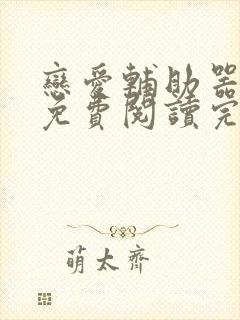 戀愛輔助器
免費閱讀完
萌太齊